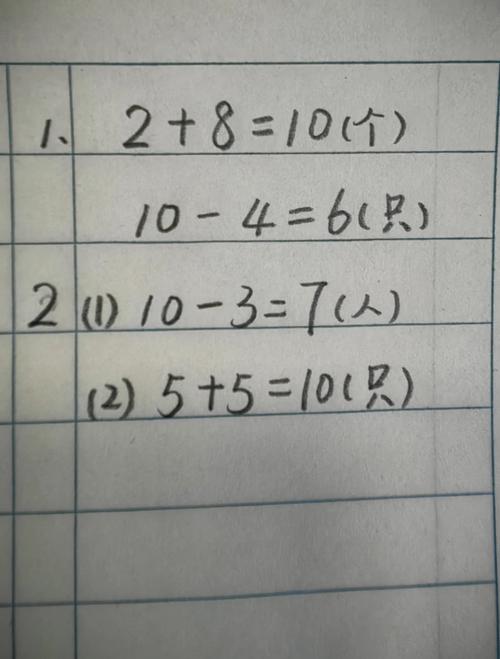 1、 2+8=10(个)
10-4=6(只)
2 (1) 10-3=7(人)
(2) 5+5=10(只)